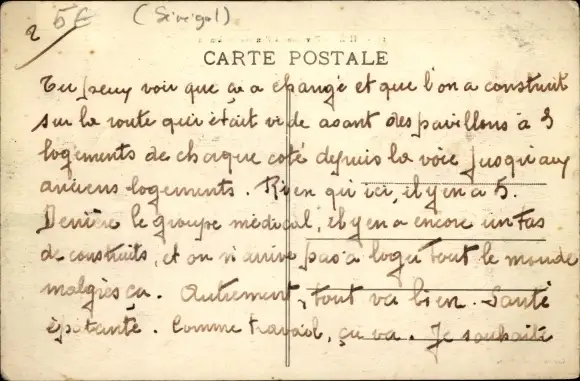 2 5f (Sénégal)
CARTE POSTALE
Tu peux voir que ça a changé et que l'on a construit
sur la route qui était vide avant des pavillons à 3
logements de chaque coté depuis la voie jusqu'aux
anciens logements. Rien qu'ici, il y en a 5.
Derrière le groupe médical, il y en a encore un tas
de construits, et on n'arrive pas à loger tout le monde
malgrès ça. Autrement, tout va bien. Santé
épatante. Comme travail, ça va. Je souhaite